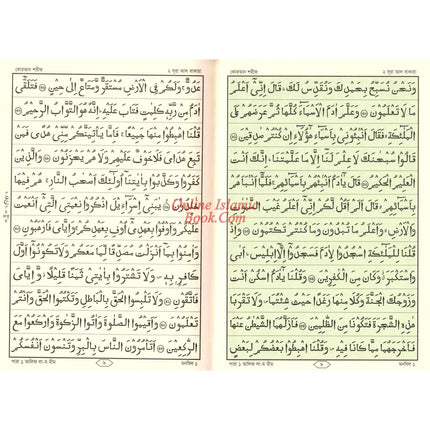 কোরআন শরীফ
২ সূরা আল বাকারা
وَنَحْنُ نُسَبِّحُ بِحَمْدِكَ وَنُقَدِّسُ لَكَ ؕ قَالَ اِنِّيْٓ اَعْلَمُ
مَا لَا تَعْلَمُوْنَ ۝ وَعَلَّمَ اٰدَمَ الْاَسْمَآءَ كُلَّهَا ثُمَّ عَرَضَهُمْ عَلَى
الْمَلٰٓئِكَةِ ۙ فَقَالَ اَنْۢبِـُٔوْنِيْ بِاَسْمَآءِ هٰٓؤُلَآءِ اِنْ كُنْتُمْ صٰدِقِيْنَ ۝
قَالُوْا سُبْحٰنَكَ لَا عِلْمَ لَنَآ اِلَّا مَا عَلَّمْتَنَا ؕ اِنَّكَ اَنْتَ
الْعَلِيْمُ الْحَكِيْمُ ۝ قَالَ يٰٓاٰدَمُ اَنْۢبِئْهُمْ بِاَسْمَآئِهِمْ ۚ فَلَمَّآ اَنْۢبَاَهُمْ
بِاَسْمَآئِهِمْ ۙ قَالَ اَلَمْ اَقُلْ لَّكُمْ اِنِّيْٓ اَعْلَمُ غَيْبَ السَّمٰوٰتِ
وَالْاَرْضِ ۙ وَاَعْلَمُ مَا تُبْدُوْنَ وَمَا كُنْتُمْ تَكْتُمُوْنَ ۝ وَاِذْ
قُلْنَا لِلْمَلٰٓئِكَةِ اسْجُدُوْا لِاٰدَمَ فَسَجَدُوْٓا اِلَّآ اِبْلِيْسَ ؕ اَبٰى
وَاسْتَكْبَرَ ؗ وَكَانَ مِنَ الْكٰفِرِيْنَ ۝ وَقُلْنَا يٰٓاٰدَمُ اسْكُنْ اَنْتَ
وَزَوْجُكَ الْجَنَّةَ وَكُلَا مِنْهَا رَغَدًا حَيْثُ شِئْتُمَا ۪ وَلَا تَقْرَبَا
هٰذِهِ الشَّجَرَةَ فَتَكُوْنَا مِنَ الظّٰلِمِيْنَ ۝ فَاَزَلَّهُمَا الشَّيْطٰنُ عَنْهَا
فَاَخْرَجَهُمَا مِمَّا كَانَا فِيْهِ ۪ وَقُلْنَا اهْبِطُوْا بَعْضُكُمْ لِبَعْضٍ
পারা ১ আলিফ লা-ম মীম
মনযিল ১
কোরআন শরীফ
২ সূরা আল বাকারা
عَدُوٌّ ۚ وَلَكُمْ فِي الْاَرْضِ مُسْتَقَرٌّ وَّمَتَاعٌ اِلٰى حِيْنٍ ۝ فَتَلَقّٰٓى
اٰدَمُ مِنْ رَّبِّهٖ كَلِمٰتٍ فَتَابَ عَلَيْهِ ؕ اِنَّهٗ هُوَ التَّوَّابُ الرَّحِيْمُ ۝
قُلْنَا اهْبِطُوْا مِنْهَا جَمِيْعًا ۚ فَاِمَّا يَاْتِيَنَّكُمْ مِّنِّيْ هُدًى فَمَنْ
تَبِعَ هُدَايَ فَلَا خَوْفٌ عَلَيْهِمْ وَلَا هُمْ يَحْزَنُوْنَ ۝ وَالَّذِيْنَ
كَفَرُوْا وَكَذَّبُوْا بِاٰيٰتِنَآ اُولٰٓئِكَ اَصْحٰبُ النَّارِ ۚ هُمْ فِيْهَا
خٰلِدُوْنَ ۝ يٰبَنِيْٓ اِسْرَآءِيْلَ اذْكُرُوْا نِعْمَتِيَ الَّتِيْٓ اَنْعَمْتُ
عَلَيْكُمْ وَاَوْفُوْا بِعَهْدِيْٓ اُوْفِ بِعَهْدِكُمْ ۚ وَاِيَّايَ فَارْهَبُوْنِ ۝
وَاٰمِنُوْا بِمَآ اَنْزَلْتُ مُصَدِّقًا لِّمَا مَعَكُمْ وَلَا تَكُوْنُوْٓا اَوَّلَ
كَافِرٍۭ بِهٖ ۪ وَلَا تَشْتَرُوْا بِاٰيٰتِيْ ثَمَنًا قَلِيْلًا ؗ وَّاِيَّايَ
فَاتَّقُوْنِ ۝ وَلَا تَلْبِسُوا الْحَقَّ بِالْبَاطِلِ وَتَكْتُمُوا الْحَقَّ وَاَنْتُمْ
تَعْلَمُوْنَ ۝ وَاَقِيْمُوا الصَّلٰوةَ وَاٰتُوا الزَّكٰوةَ وَارْكَعُوْا مَعَ
الرّٰكِعِيْنَ ۝ اَتَاْمُرُوْنَ النَّاسَ بِالْبِرِّ وَتَنْسَوْنَ اَنْفُسَكُمْ
পারা ১ আলিফ লা-ম মীম
মনযিল ১
Online Islamic
Book.Com